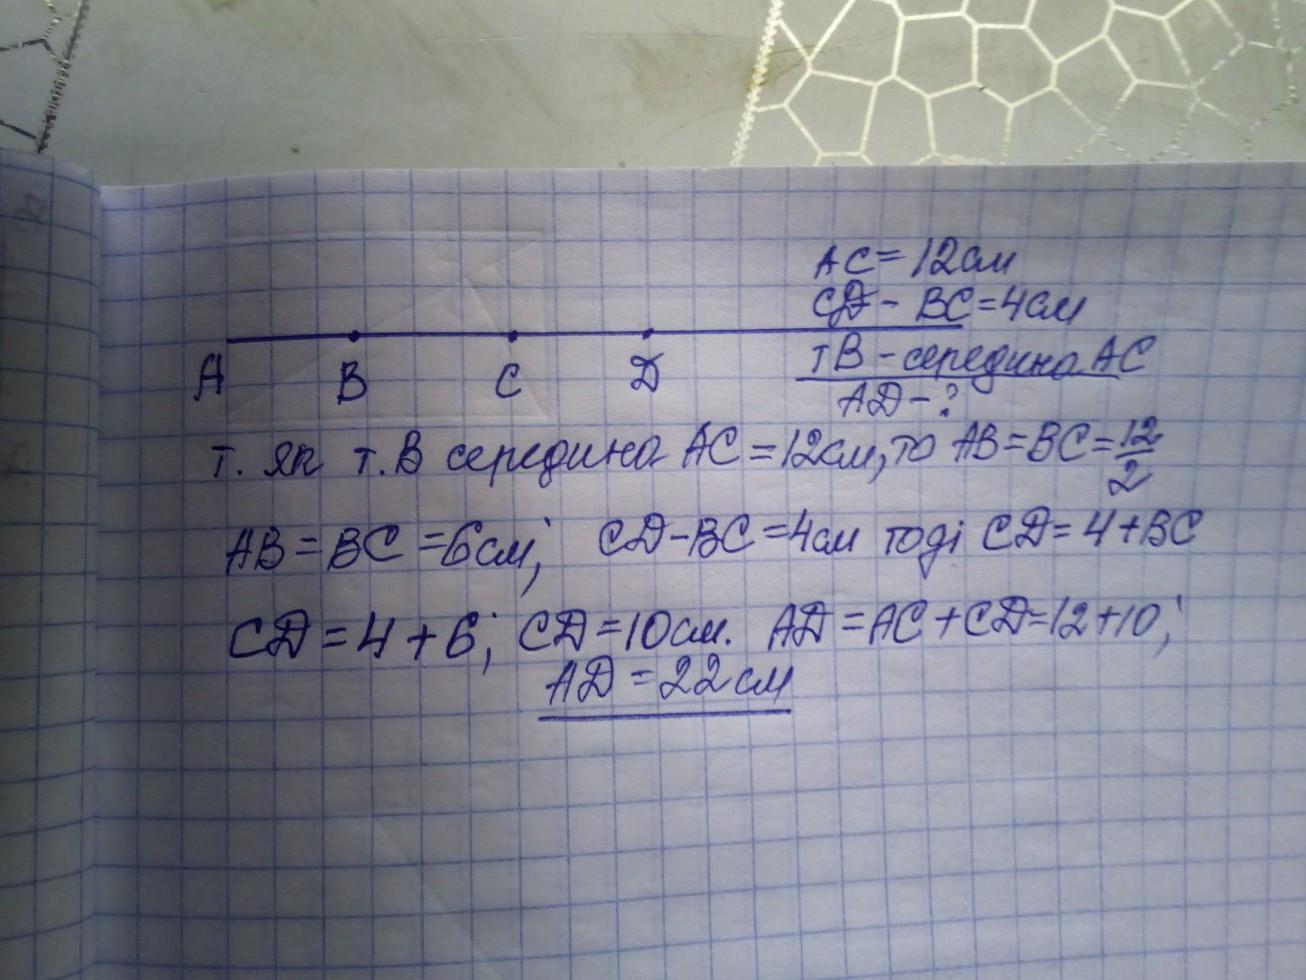 AC = 12см
CD - BC = 4см
A B C D
т B - середина AC
AD - ?
т. як т. B середина AC = 12см, то AB = BC = 12/2
AB = BC = 6см; CD - BC = 4см тоді CD = 4 + BC
CD = 4 + 6; CD = 10см. AD = AC + CD = 12 + 10;
AD = 22см